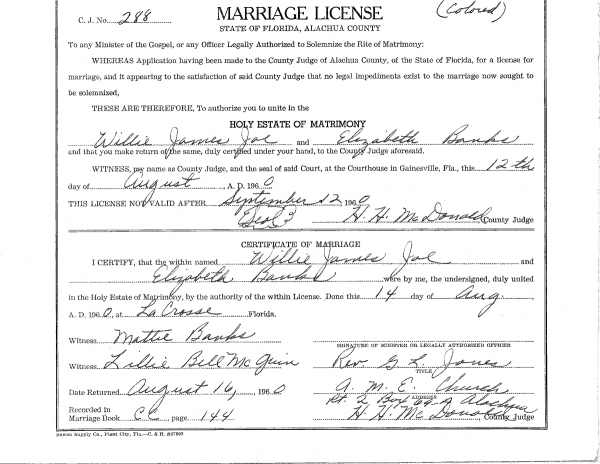 C. J. No. 288 MARRIAGE LICENSE (Colored)
STATE OF FLORIDA, ALACHUA COUNTY
To any Minister of the Gospel, or any Officer Legally Authorized to Solemnize the Rite of Matrimony:
WHEREAS Application having been made to the County Judge of Alachua County, of the State of Florida, for a license for
marriage, and it appearing to the satisfaction of said County Judge that no legal impediments exist to the marriage now sought to
be solemnized,
THESE ARE THEREFORE, To authorize you to unite in the
HOLY ESTATE OF MATRIMONY
Willie James Joe and Elizabeth Banks
and that you make return of the same, duly certified under your hand, to the County Judge aforesaid.
WITNESS, my name as County Judge, and the seal of said Court, at the Courthouse in Gainesville, Fla., this 12th
day of August, A. D. 1960
THIS LICENSE NOT VALID AFTER September 12, 1960
Seal H. H. McDonald County Judge
CERTIFICATE OF MARRIAGE
I CERTIFY, that the within named Willie James Joe and
Elizabeth Banks were by me, the undersigned, duly united
in the Holy Estate of Matrimony, by the authority of the within License. Done this 14 day of Aug.,
A. D. 1960, at La Crosse Florida.
Witness Mattie Banks
SIGNATURE OF MINISTER OR LEGALLY AUTHORIZED OFFICER
Witness Lillie Bell McGuin Rev. G. L. Jones
TITLE
Date Returned August 16, 1960 A. M. E. Church
ADDRESS
Rt. 2 Box Alachua
Recorded in
Marriage Book CC, page 144 H. H. McDonald, County Judge
Supply Co., Plant City, Fla.—C. & H.